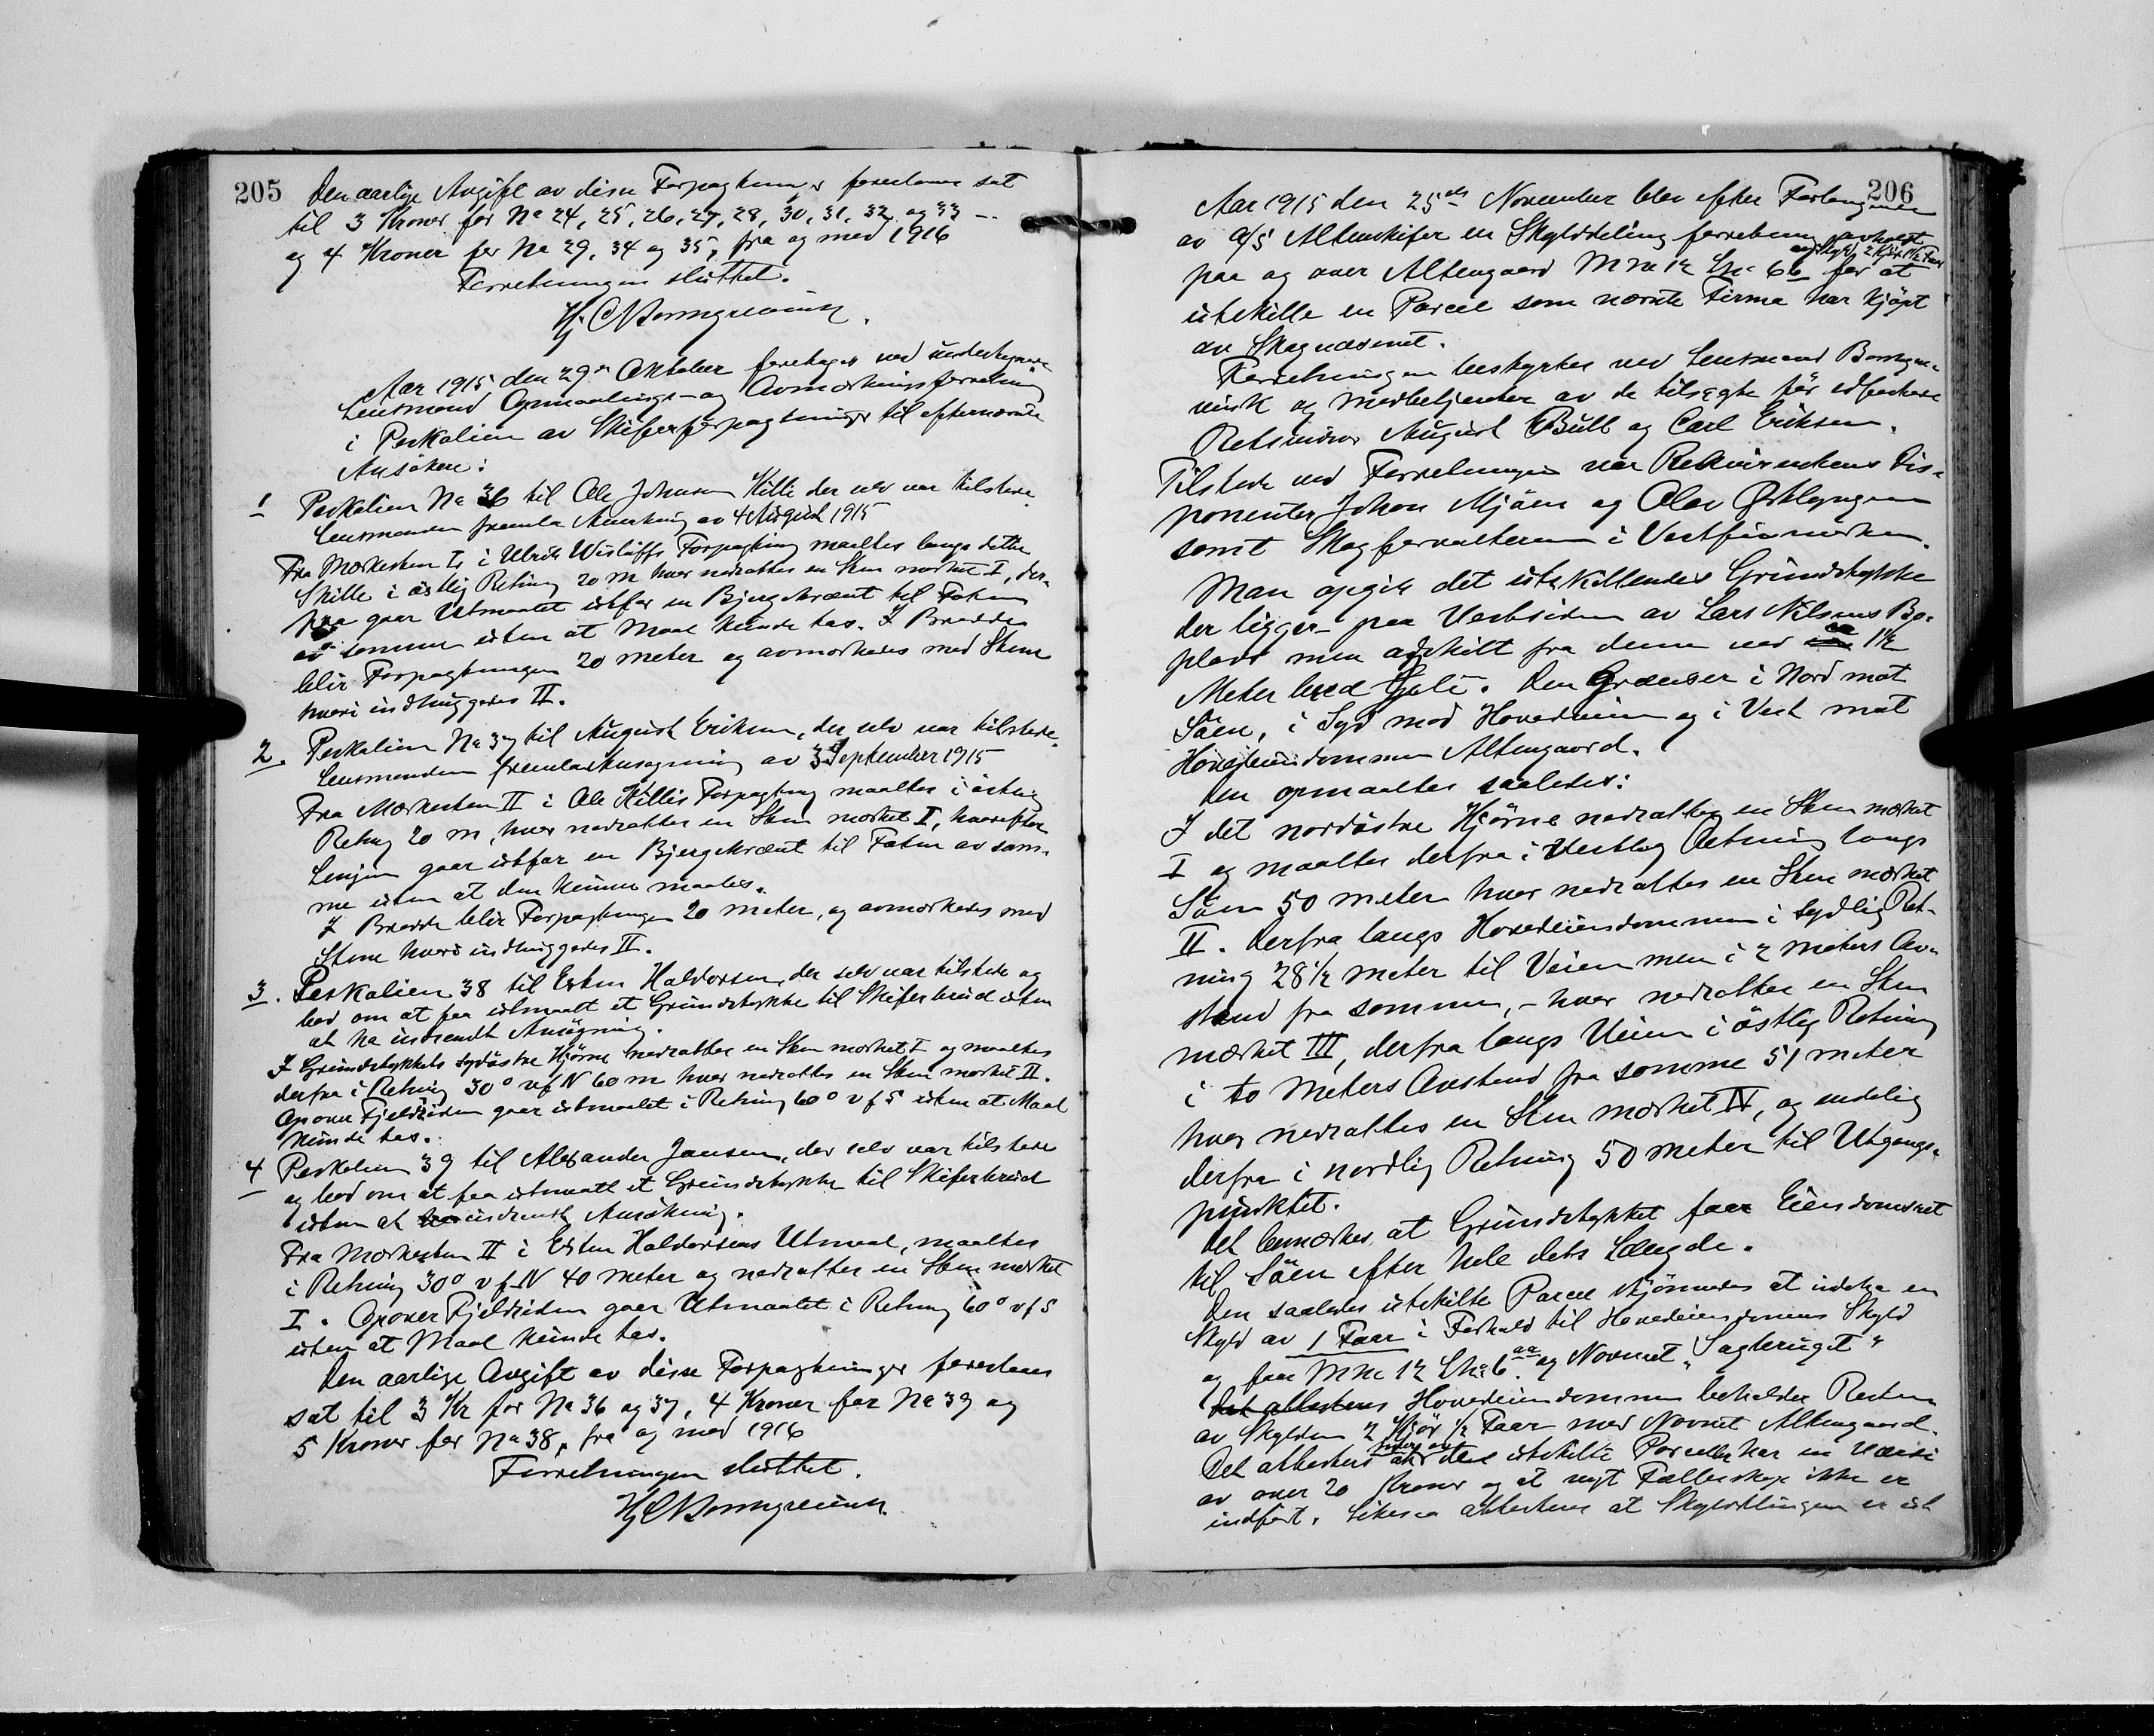 205
Den aarlige Avgift av disse Forpagtninger forestaaes sat
til 3 Kroner for No 24, 25, 26, 27, 28, 30, 31, 32 og 33 –
og 4 Kroner for No 29, 34 og 35, fra og med 1916
Forretningen sluttet.
Aar 1915 den 29de Oktober foretages ved undertegnede
Lensmand Opmaalings- og Avmerkningsforretning
i Peskalien av Skiferforpagtninger til efternævnte
Ansökere:
1 Peskalien No 36 til Ole Johnsen Kitti der selv var tilstede.
Lensmanden fremla Anvisning av 4 August 1915
Fra Merkesten I i Ulrik Wisløffs Forpagtning maaltes langs dette
Skille i östlig Retning 20 m hvor nedsattes en Sten merket I, der-
fra gaar Utmaalet utfor en Bjergskrænt til Foten
av samme uten at Maal kunde tas. I Bredde
blir Forpagtningen 20 meter og avmerkedes med Stene
hvori indhuggedes II.
2. Peskalien No 37 til August Eriksen, der selv var tilstede.
Lensmanden fremla Ansøgning av 3 September 1915
Fra Merkesten II i Ole Kittis Forpagtning maaltes i östlig
Retning 20 m, hvor nedsattes en Sten merket I, hvorefter
Linjen gaar utfor en Bjergskrænt til Foten av sam-
me uten at den kunne maales.
I Bredde blir Forpagtningen 20 meter, og avmerkedes med
Stene hvori indhuggedes II.
3. Peskalien 38 til Esten Haldorsen, der selv var tilstede og
bad om at faa utmaalt et Grundstykke til Skiferbrud uten
at ha indsendt Ansögning.
I Grundstykkets sydöstre Hjörne nedsattes en Sten merket I og maaltes
derfra i Retning 30° v f N 60 m hvor nedsattes en Sten merket II.
Opover Fjeldsiden gaar utmaalet i Retning 60° v f S uten at Maal
kunde tas.
4 Peskalien 39 til Alexander Jansen, der selv var tilstede
og bad om at faa utmaalt et Grundstykke til Skiferbrud
uten at ha indsendt Ansökning.
Fra Merkesten II i Esten Haldorsens Utmaal, maaltes
i Retning 30° v f N 40 meter og nedsattes en Sten merket
I. Opover Fjeldsiden gaar Utmaalet i Retning 60° v f S
uten at Maal kunde tas.
Den aarlige Avgift av disse Forpagtninger forestaaes
sat til 3 Kr for No 36 og 37, 4 Kroner for No 39 og
5 Kroner for No 38, fra og med 1916
Forretningen sluttet.
206
Aar 1915 den 25de November blev efter Forlangende
av A/S Altenskifer en Skylddeling forretning avholdt
paa og over Altengaard M No 12 L No 6b av Skyld 2 Kjör 1½ Faar for at
utskille en Parcel som nævnte Firma har kjöpt
av Skogvæsenet.
Forretningen bestyrkes ved Lensmand Borngre-
vink og Medbetjenter av de tilsagte för edfæstede
Retsvidner August Bull og Carl Eriksen.
Tilstede ved Forretningen var Rekvirentens Dis-
ponenter Johan Mjöen og Olav Østlyngen
samt Skogforvalteren i Vestfinmarken.
Man opgik det utskillendes Grundstykke
der ligger paa Vestsiden av Lars Nilsens Bo-
plads men adskilt fra denne ved ca 1½
Meter bred Gate. Den Grænser i Nord mot
Söen, i Syd mod Hovedveien og i Vest mot
Hovedeiendommen Altengaard.
Den opmaaltes saaledes:
I det nordöstre Hjörne nedsattes en Sten merket
I og maaltes derfra i Vestlig Retning langs
Söen 50 meter hvor nedsattes en Sten merket
II. Derfra langs Hovedeiendommen i sydlig Ret-
ning 28½ meter til Veien men i 2 meters Av-
stand fra samme, – hvor nedsattes en Sten
merket III, derfra langs Veien i östlig Retning
i to Meters Avstand fra samme 51 meter
hvor nedsattes en Sten merket IV, og endelig
derfra i nordlig Retning 50 meter til Utgangs-
punktet.
Det bemerkes, at Grundstykket faar Eiendomsret
til Söen efter hele dets Længde.
Den saaledes utskilte Parcel skjönnedes at indeha en
Skyld av 1 Faar i Forhold til Hovedeiendommens Skyld
og faar M No 12 L No 6 aa og Navnet „Sagbruget"
Det attesteres Hovedeiendommen beholder Resten
av Skylden 2 Kjör ½ Faar med Navnet Altengaard.
Det attesteres at den utskilte Parcel har en Værdi
av over 20 Kroner og at nyt Fællesskap ikke er
indfört. Likesaa attesteres at Skylddelingen er ut